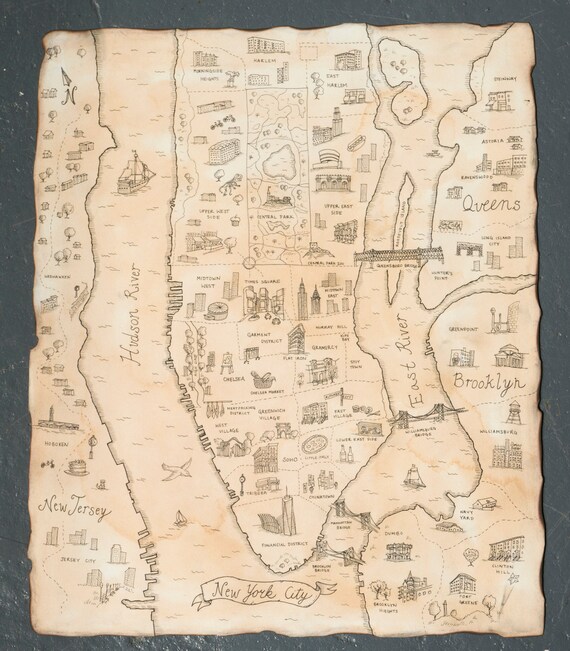 N
MORNINGSIDE
HEIGHTS
HARLEM
EAST
HARLEM
STEINWAY
ASTORIA
RAVENSWOOD
Queens
UPPER WEST
SIDE
CENTRAL PARK
UPPER EAST
SIDE
LONG ISLAND
CITY
CENTRAL PARK ZOO
QUEENSBORO BRIDGE
HUNTER'S
POINT
WEEHAWKEN
Hudson River
MIDTOWN
WEST
TIMES SQUARE
MIDTOWN
EAST
GARMENT
DISTRICT
MURRAY HILL
FLAT IRON
GRAMERCY
STUY
TOWN
CHELSEA
CHELSEA MARKET
East River
GREENPOINT
Brooklyn
MEATPACKING
DISTRICT
GREENWICH
VILLAGE
EAST
VILLAGE
WEST
VILLAGE
WILLIAMSBURG
BRIDGE
WILLIAMSBURG
HOBOKEN
SOHO
LITTLE ITALY
LOWER EAST SIDE
TRIBECA
CHINATOWN
New Jersey
JERSEY CITY
FINANCIAL DISTRICT
MANHATTAN
BRIDGE
NAVY
YARD
DUMBO
BROOKLYN
BRIDGE
CLINTON
HILL
New York City
BROOKLYN
HEIGHTS
FORT
GREENE